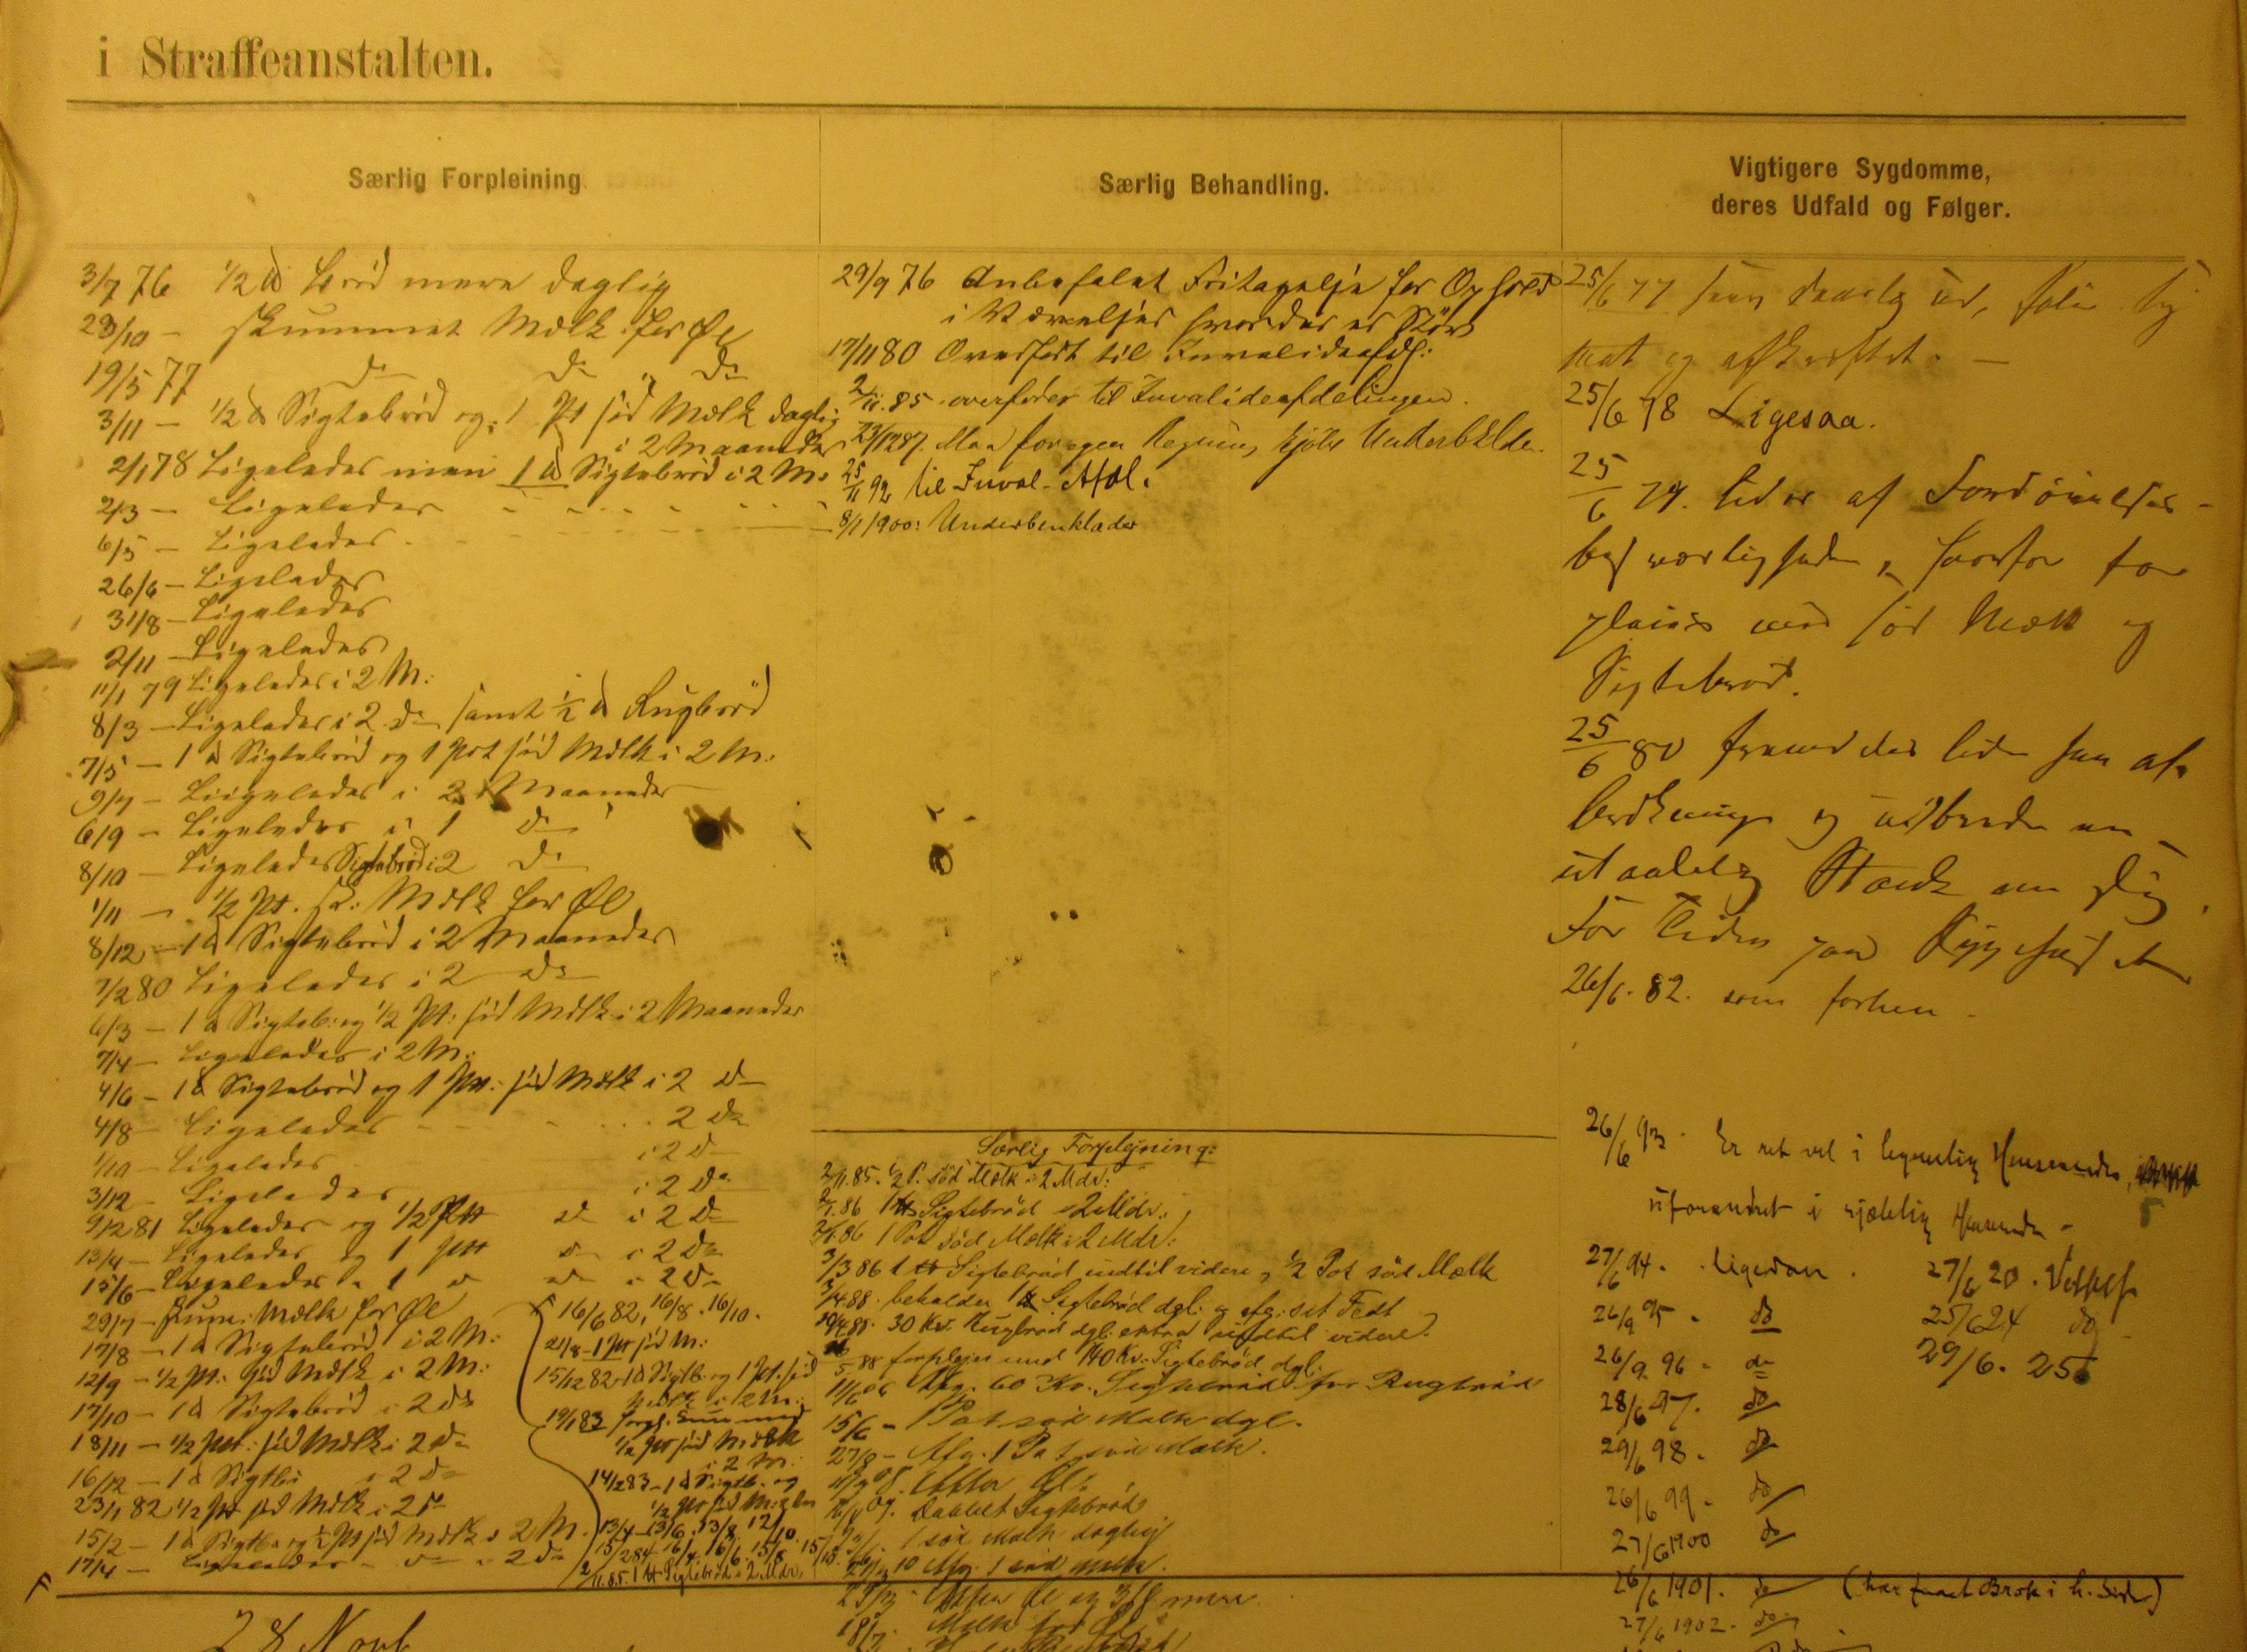 i Straffeanstalten.
Særlig Forpleining
3/7 76 1/2 ℔ Brød mere daglig
23/10 – skummet Mælk for Øl
19/5 77 do do do
3/11 – 1/2 ℔ Sigtebrød og 1 Pt sød Mælk daglig
i 2 Maaneder
2/1 78 Ligeledes men 1 ℔ Sigtebrød i 2 M:
2/3 – Ligeledes
6/5 – Ligeledes
26/6 – Ligeledes
31/8 – Ligeledes
2/11 – Ligeledes
11/1 79 Ligeledes i 2 M:
8/3 – Ligeledes i 2 do samt 1/2 ℔ Rugbrød
7/5 – 1 ℔ Sigtebrød og 1 Pot sød Mælk i 2 M:
9/7 – Ligeledes i 2 Maaneder
6/9 – Ligeledes i 1 do
8/10 – Ligeledes Sigtebrød i 2 do
1/11 – 1/2 Pt. sk: Mælk for Øl
8/12 – 1 ℔ Sigtebrød i 2 Maaneder
7/2 80 Ligeledes i 2 do
6/3 – 1 ℔ Sigteb: og 1/2 Pt: sød Mælk i 2 Maaneder
7/4 – Ligeledes i 2 M:
4/6 – 1 ℔ Sigtebrød og 1 Pt: sød Mælk i 2 do
4/8 – Ligeledes 2 do
1/10 – Ligeledes i 2 do
3/12 – Ligeledes i 2 do
9/2 81 Ligeledes og 1/2 Pt do i 2 do
13/4 – Ligeledes og 1 Pt do i 2 do
15/6 – Ligeledes 1 do do i 2 do
29/7 – Skum: Mælk for Øl
17/8 – 1 ℔ Sigtebrød i 2 M:
12/9 – 1/2 Pt: sød Mælk i 2 M:
17/10 – 1 ℔ Sigtebrød i 2 do
18/11 – 1/2 Pt: sød Mælk i 2 do
16/12 – 1 ℔ Sigtbr i 2 do
23/1 82 1/2 Pt sød Mælk i 2 do
15/2 – 1 ℔ Sigtbr og 1/2 Pt sød Mælk i 2 M.
17/4 – Ligeledes – do i 2 do
16/6 82, 16/8. 16/10.
21/8 – 1 Pt sød M:
15/12 82 – 1 ℔ Sigtb. og 1 Pot. sød
Mælk i 2 M:
19/1 83
1/2 Pt sød Mælk
i 2 M.
14/2 83 – 1 ℔ Sigtb. og
1/2 Pt sød M:
13/4 – 13/6. 13/8. 12/10.
15/2 84 16/4. 16/6. 15/8. 15/10.
2/11.85. 1 ℔ Sigtebrød i 2 Mdr,
28 Novb
Særlig Behandling.
29/9 76 Anbefalet Fritagelse for Ophold
i Værelser hvor der er Støv
17/11 80 Overført til Invalideafdl:
2/11. 85. overføres til Invalideafdelingen.
23/12 87. Maa for egen Regning kjøbe Underbklder.
25/11 92 til Inval. Afdl.
8/1 1900: Underbenklæder
Særlig Forplejning:
2/11.85. 1/2 P. sød Mælk i 2 Mdr:
2/1.86 1 ℔ Sigtebrød i 2 Mdr.
2/1.86 1 Pot sød Mælk i 2 Mdr:
3/3 86 1 ℔ Sigtebrød indtil videre, 1/2 Pot sød Mælk
3/4.88. beholder 1 ℔ Sigtebrød dgl. og afg: set Fedt
19/4 88. 30 Kv. Rugbrød dgl. extra indtil videre.
5 88 forplejes med 140 Kv. Sigtebrød dgl:
60 Kv. Sigtebrød for Rugbrød
15/6 – 1 Pot sød Mælk dgl.
27/8 – Afg. 1 Pot sød Mælk.
09. Daabelt Sigtebrød
1 sød Mælk daglig
10 Afg. 1 sød Mælk.
mere
18/7. Mælk for Øl
Vigtigere Sygdomme,
deres Udfald og Følger.
25/6 77 seer daarlig ud, føler sig
mat og afkræftet. –
25/6 78 Ligesaa.
25/6 79. lider af Fordøielses-
besværligheder, hvorfor for
pleies med sød Mælk og
Sigtebrød.
25/6 80 fremdeles lider han af
og udbreder en
utaalelig Stank om sig.
For Tiden paa Sygehuset
26/6. 82. som forhen.
26/6 93. Er ret vel i legemlig Henseende,
uforandret i sjælelig Henseende.
27/6 94. ligedan.
26/9 95. do
26/9 96 – do
28/6 97. do
29/6 98. do
26/6 99. do
27/6 1900 do
26/6 1901. do (har faaet Brok i h. Side)
27/6 1902. do
27/6 20.
25/6 24 do
29/6. 25